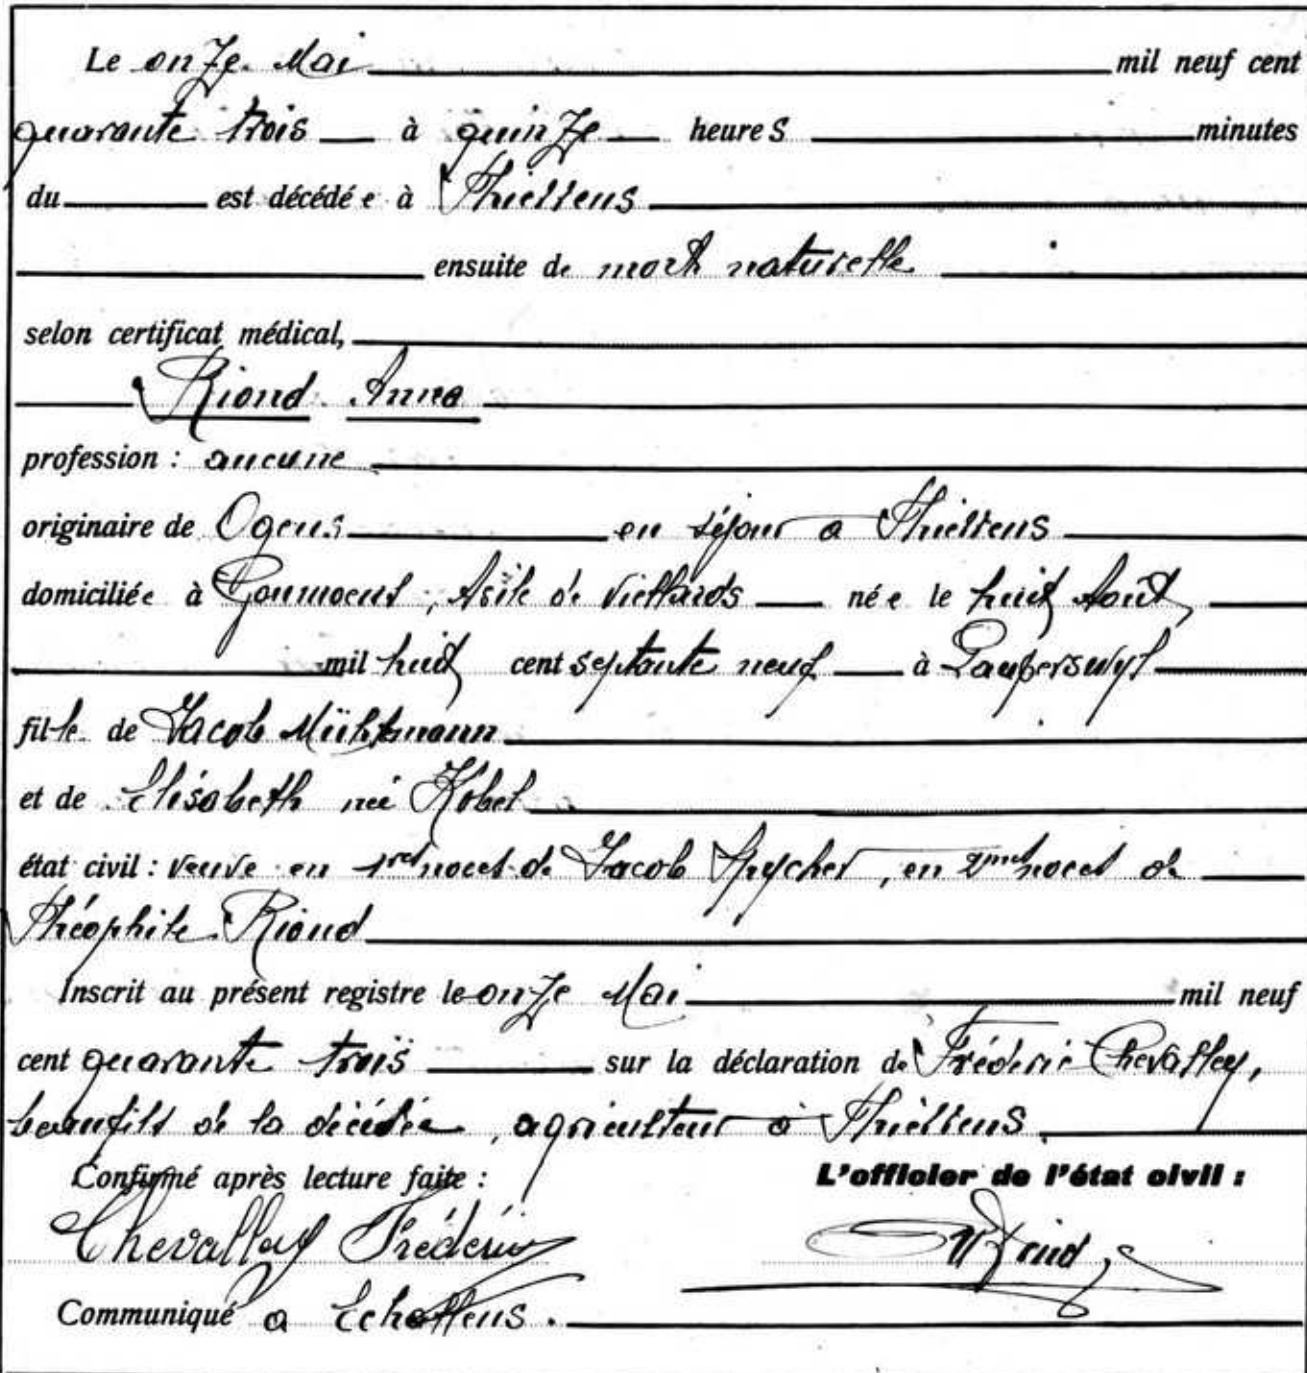 Le onze Mai mil neuf cent
quarante trois à quinze heures minutes
du est décédée à Thierrens
ensuite de mort naturelle
selon certificat médical,
Riond Anna
profession : aucune
originaire de Ogens en séjour à Thierrens
domiciliée à Goumoens, Asile de Vieillards née le huit Août
mil huit cent septante neuf à Lauperswyl
fille de Jacob Mühlemann
et de Elisabeth née Kobel
état civil : veuve en 1res noces de Jacob Spycher, en 2mes noces de
Théophile Riond
Inscrit au présent registre le onze Mai mil neuf
cent quarante trois sur la déclaration de Frédéric Chevalley,
beaufils de la décédée, agriculteur à Thierrens.
Confirmé après lecture faite : L'officier de l'état civil :
Chevalley Frédéric
Communiqué à Echallens.